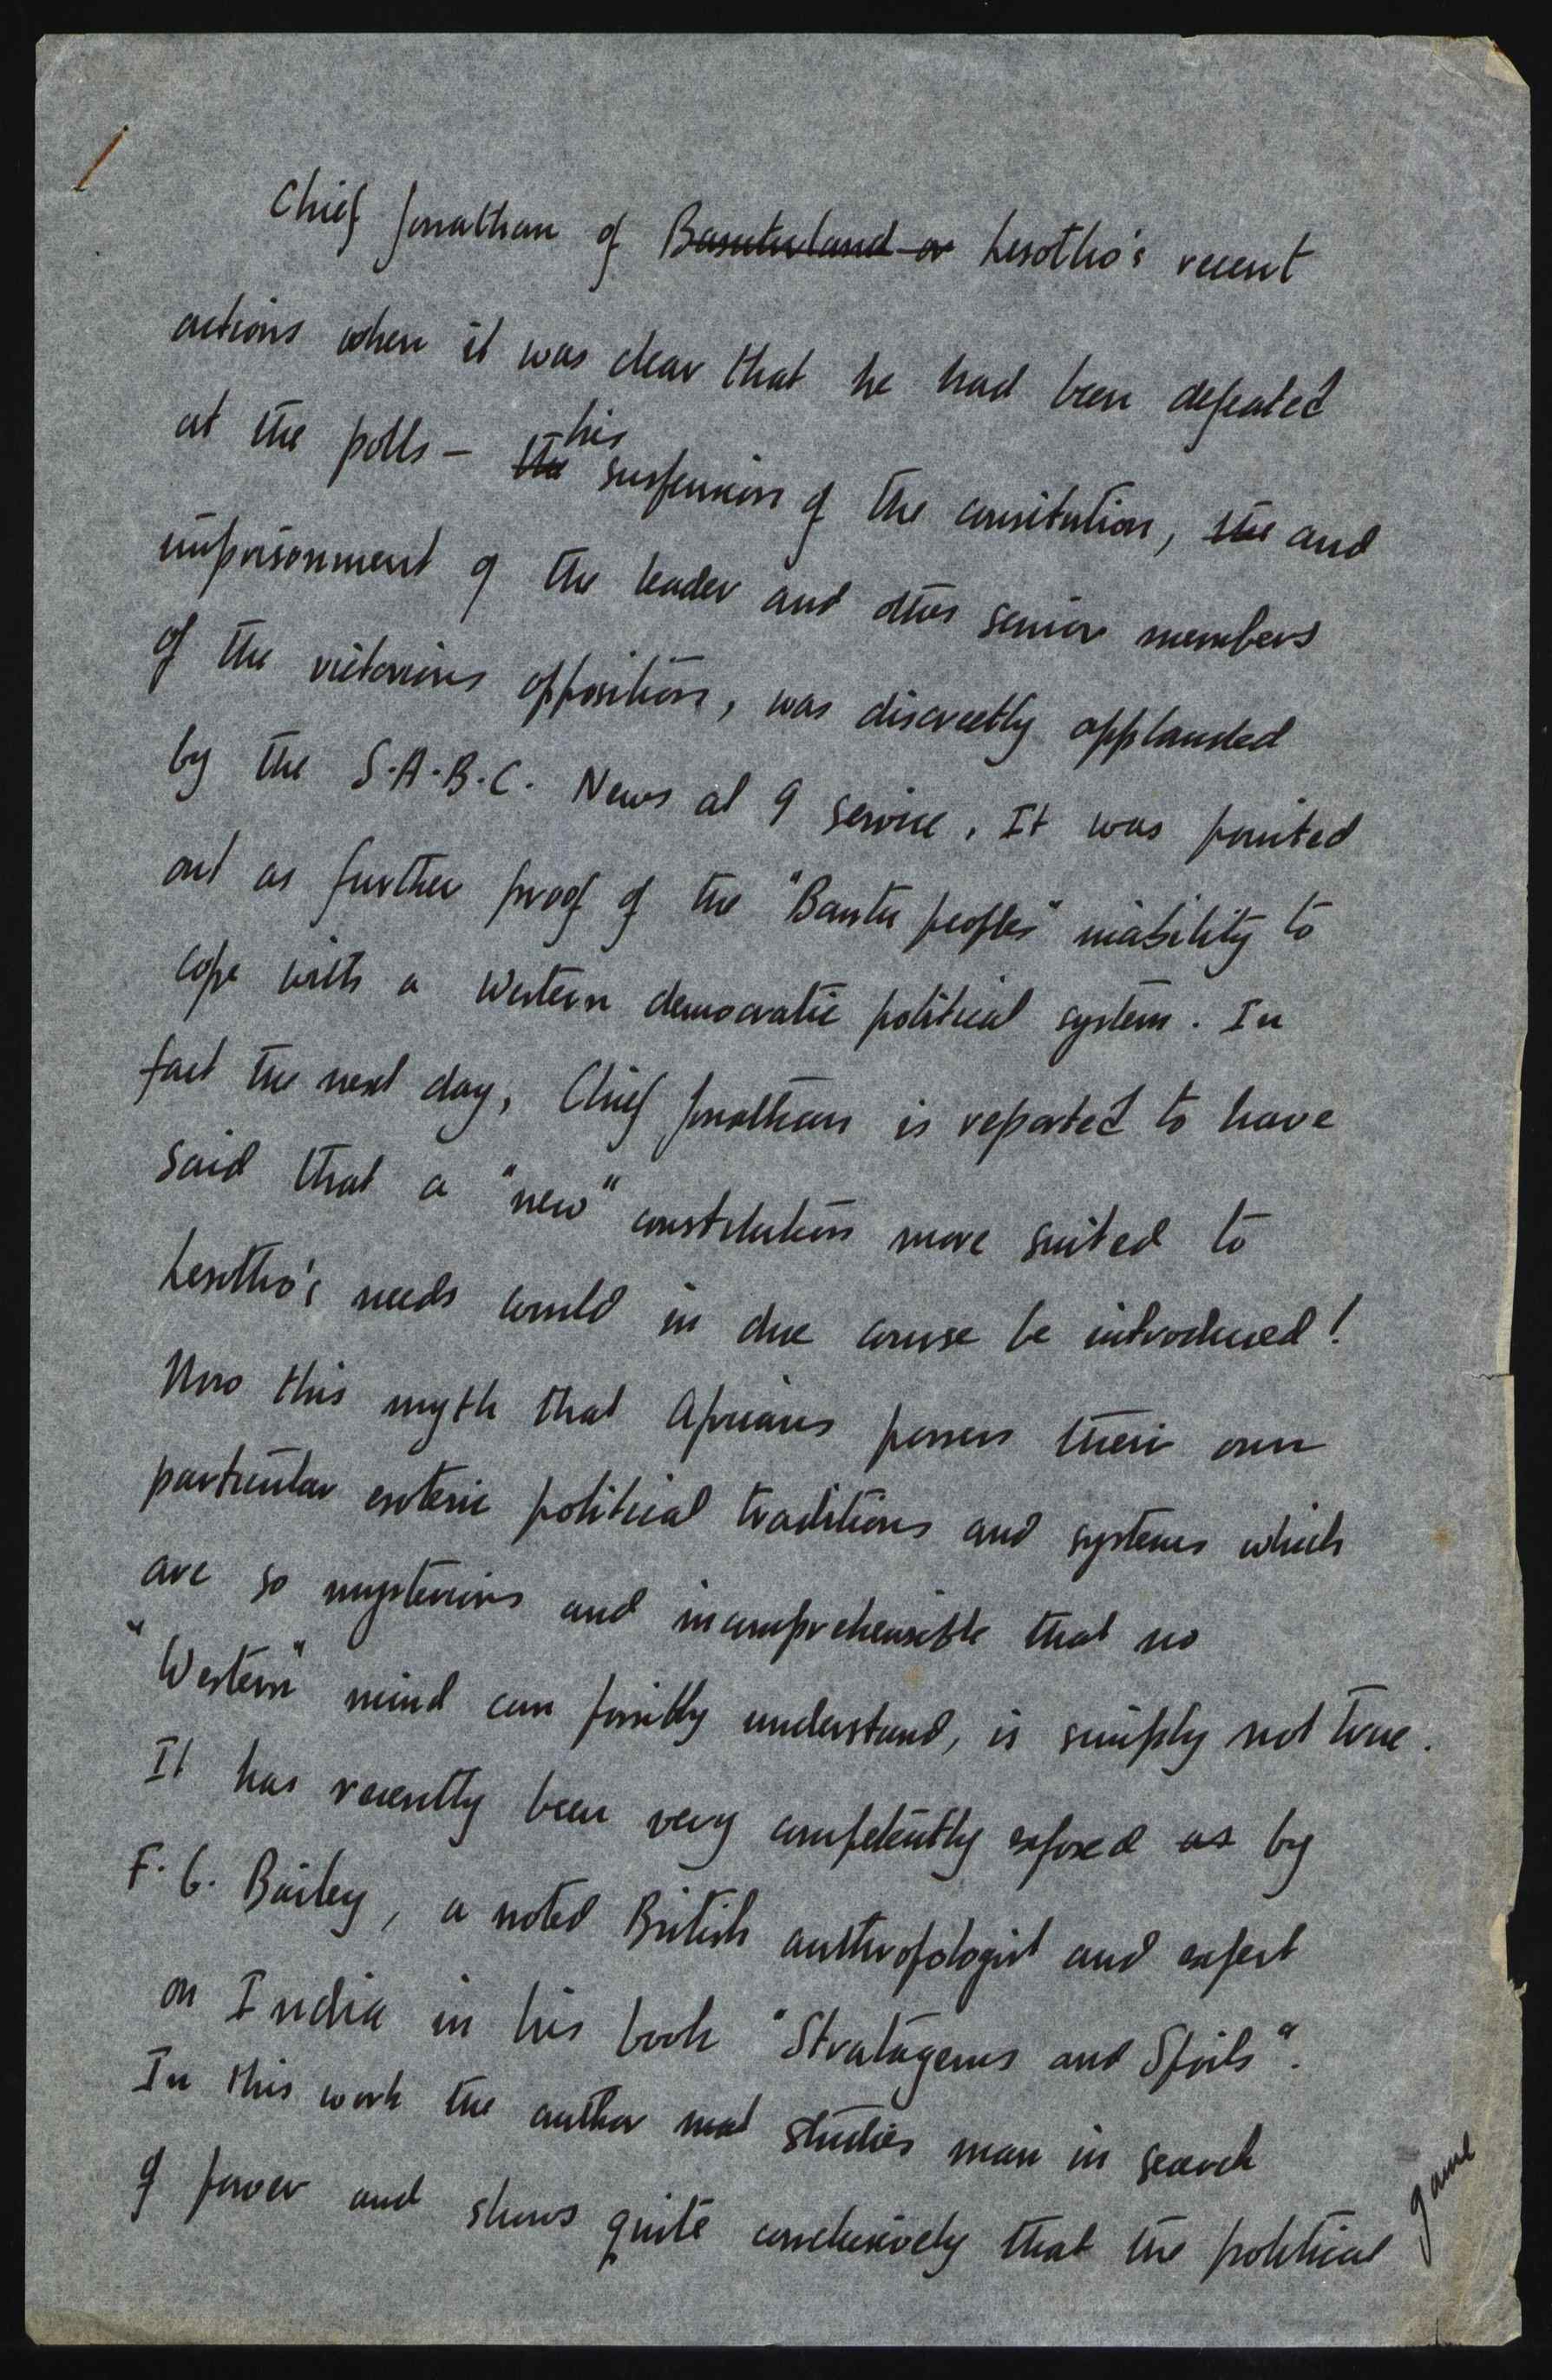 Chief Jonathan of Basutuland or Lesotho's recent
actions when it was clear that he had been defeated
at the polls – the his suspension of the consitution, the and
imprisonment of the leader and other senior members
of the victorious opposition, was discreetly applauded
by the S.A.B.C. News at 9 service. It was pointed
out as further proof of the "Bantu peoples" inability to
cope with a Western democratic political system. In
fact the next day, Chief Jonathan is reported to have
said that a "new" constitution more suited to
Lesotho's needs would in due course be introduced!
Now this myth that Africans possess their own
particular esoteric political traditions and systems which
are so mysterious and incomprehensible that no
"Western" mind can possibly understand, is simply not true.
It has recently been very competently exposed as by
F.G. Bailey, a noted British anthropologist and expert
on India in his book "Stratagems and Spoils".
In this work the author studies man in search
of power and shows quite conclusively that the political
game